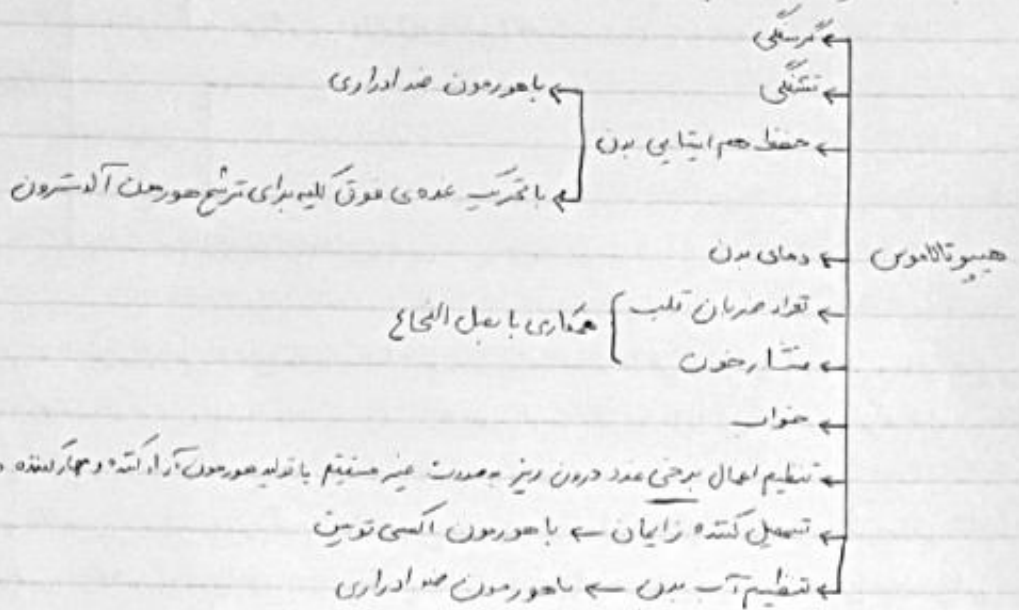 گرسنگی
تشنگی
حفظ هم ایستایی بدن
با هورمون ضد ادراری
با تحریک غده ی فوق کلیه برای ترشح هورمون آلدسترون
هیپوتالاموس
دمای بدن
تعداد ضربان قلب
فشار خون
همکاری با بصل النخاع
خواب
تنظیم اعمال برخی غدد درون ریز به صورت غیر مستقیم با تولید هورمون آزاد کننده و مهار کننده
تسهیل کننده زایمان با هورمون اکسی توسین
تنظیم آب بدن با هورمون ضد ادراری